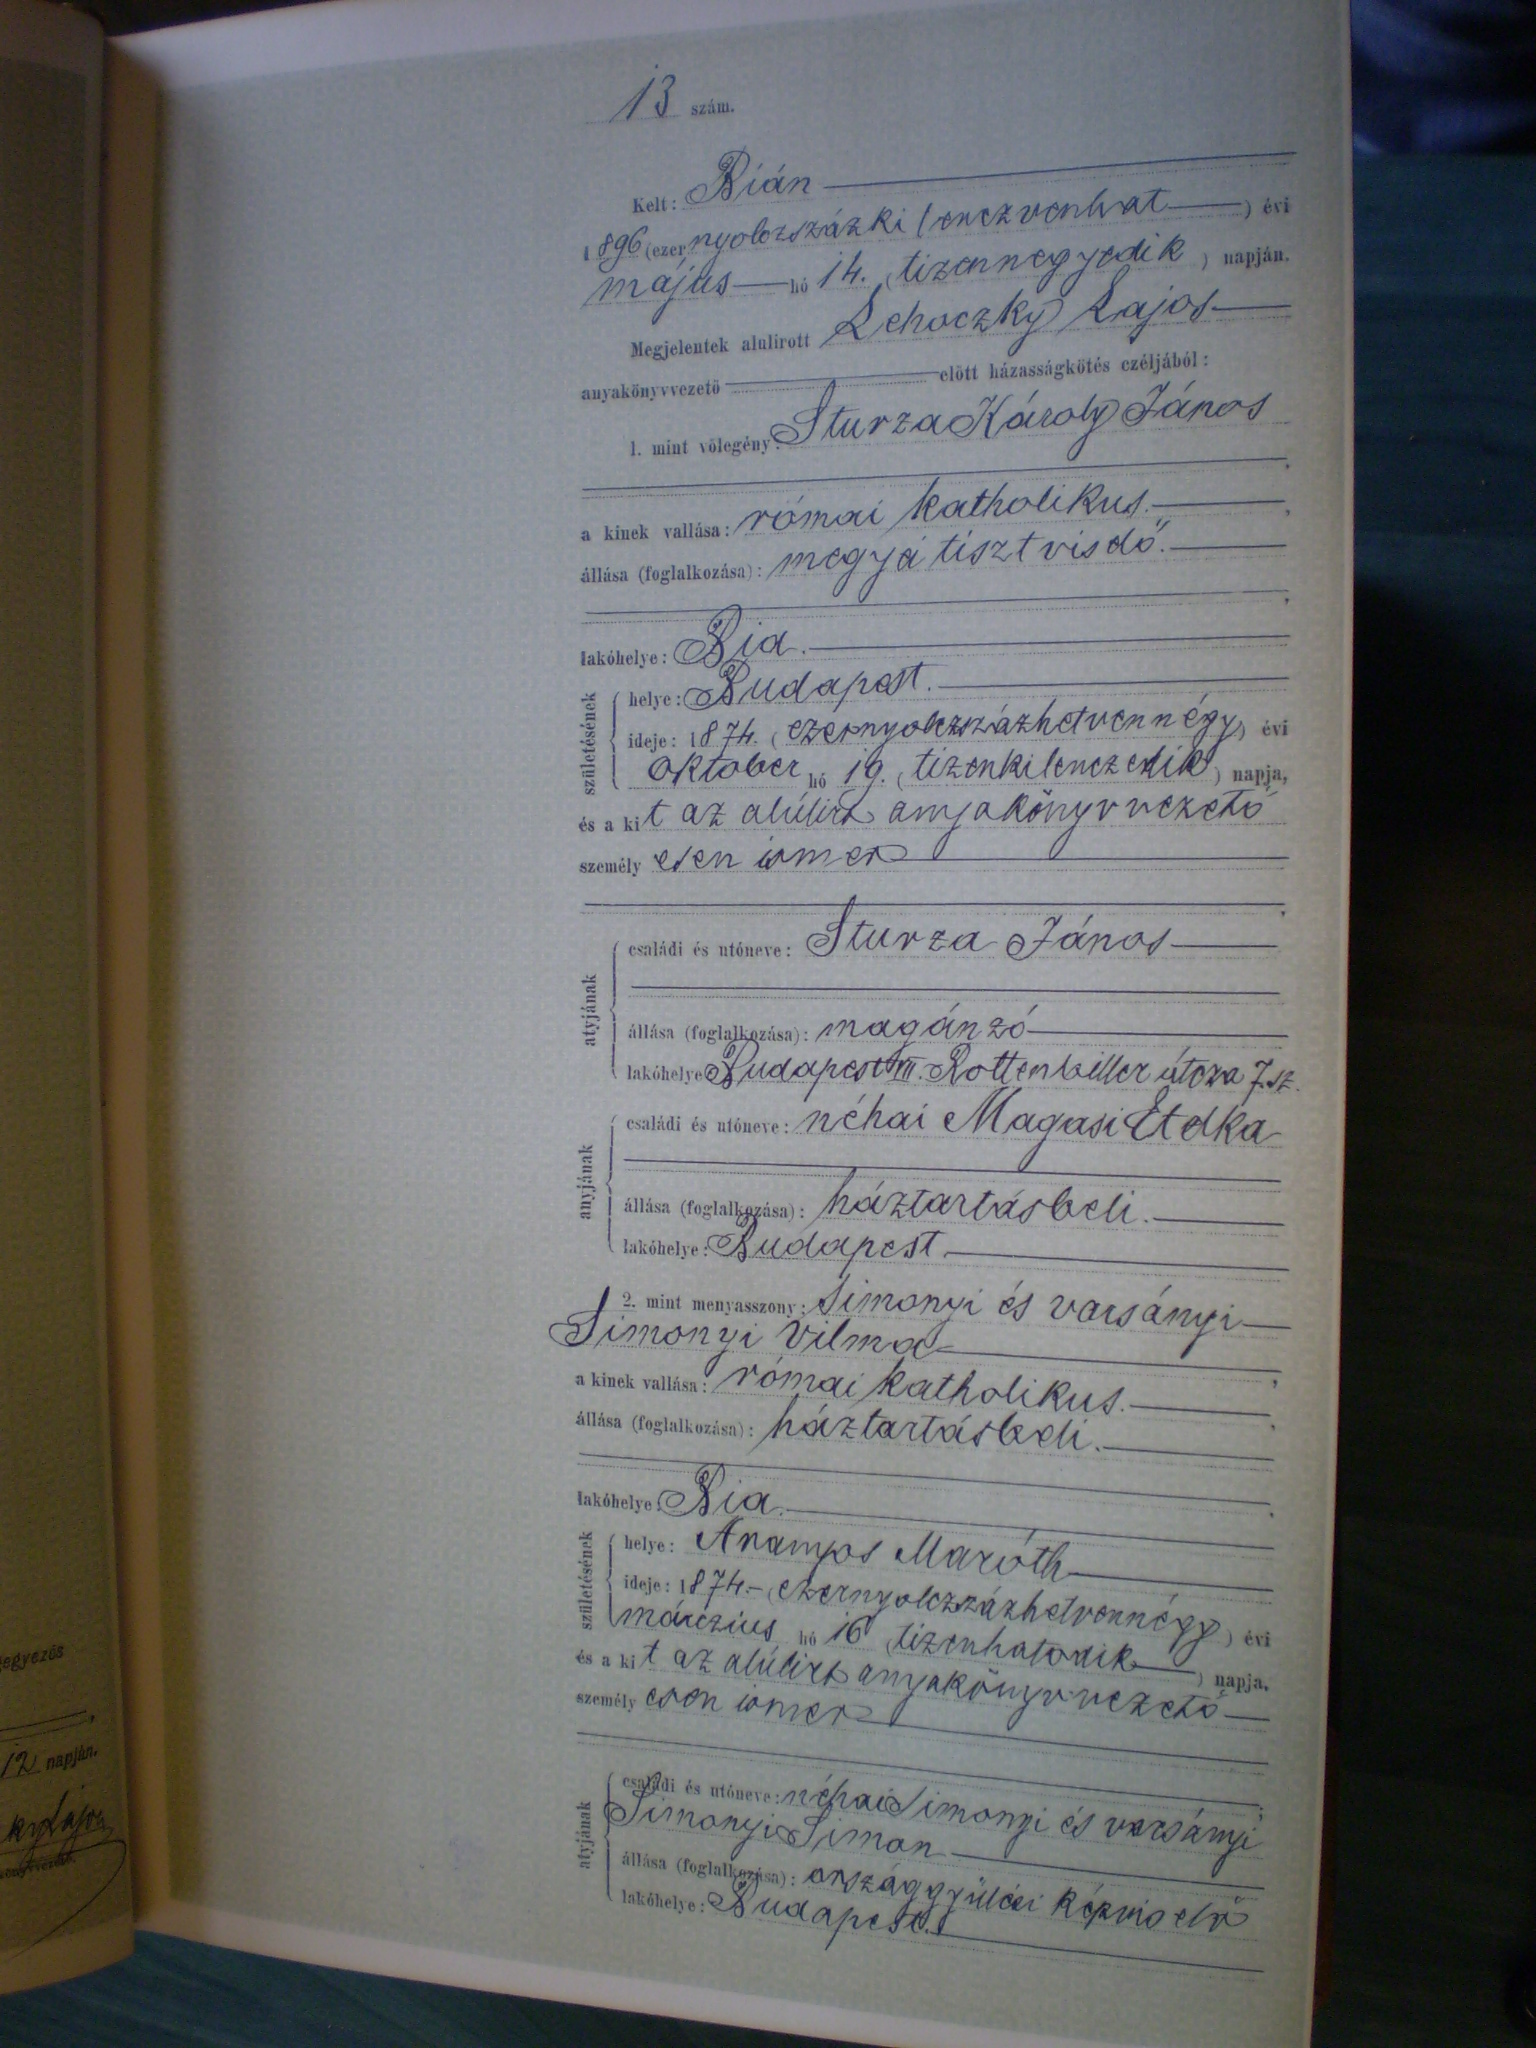 13 szám.
Kelt: Bián
1896 (ezernyolczszázkilenczvenhat) évi
május hó 14. (tizennegyedik) napján.
Megjelentek alulirott Lehoczky Lajos
anyakönyvvezető előtt házasságkötés czéljából:
1. mint vőlegény: Sturza Károly János
a kinek vallása: római katholikus.
állása (foglalkozása): megyei tisztviselő.
lakóhelye: Bia.
születésének
helye: Budapest.
ideje: 1874. (ezernyolczszázhetvennégy) évi
október hó 19. (tizenkilenczedik) napja,
és a kit az alúlirt anyakönyvvezető
személyesen ismer
atyjának
családi és utóneve: Sturza János
állása (foglalkozása): magánzó
lakóhelye: Budapest VII. Rottenbiller útcza 7. sz.
anyjának
családi és utóneve: néhai Magasi Etelka
állása (foglalkozása): háztartásbeli.
lakóhelye: Budapest
2. mint menyasszony: simonyi és varsányi
Simonyi Vilma
a kinek vallása: római katholikus.
állása (foglalkozása): háztartásbeli.
lakóhelye: Bia.
születésének
helye: Aranyos Maróth
ideje: 1874.- (ezernyolczszázhetvennégy) évi
márczius hó 16 (tizenhatodik) napja,
és a kit az alúlirt anyakönyvvezető
személyesen ismer
atyjának
családi és utóneve: néhai Simonyi és varsányi
Simonyi Simon
állása (foglalkozása): országgyülési képviselő
lakóhelye: Budapest.
egyezés
12 napján.
ky Lajos